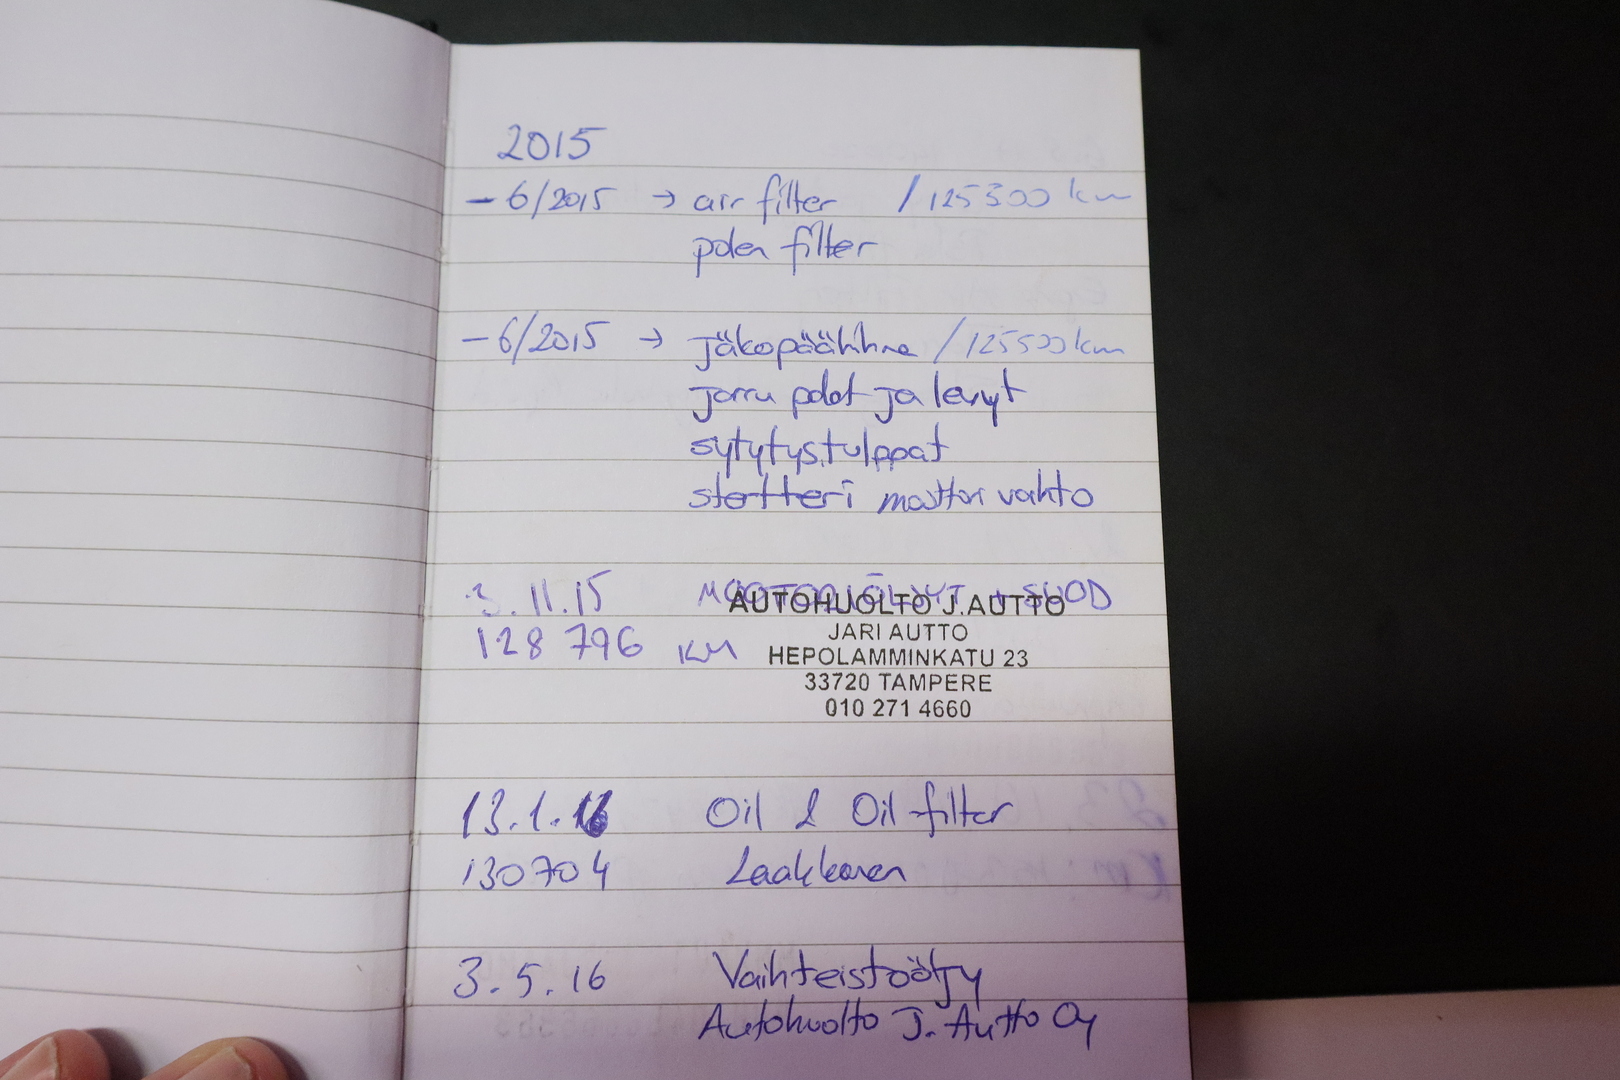 2015
- 6/2015 → air filter / 125300 km
polen filter
- 6/2015 → jäkopäähihna / 125500 km
jarru palat ja levyt
sytytystulppat
startteri moottori vaihto
3.11.15 MOOTTORIÖLJYT + SUOD
AUTOHUOLTO J.AUTTO
JARI AUTTO
128 796 KM
HEPOLAMMINKATU 23
33720 TAMPERE
010 271 4660
13.1.16 Oil & Oil filter
130704 Laakkonen
3.5.16 Vaihteistoöljy
Autohuolto J. Autto Oy